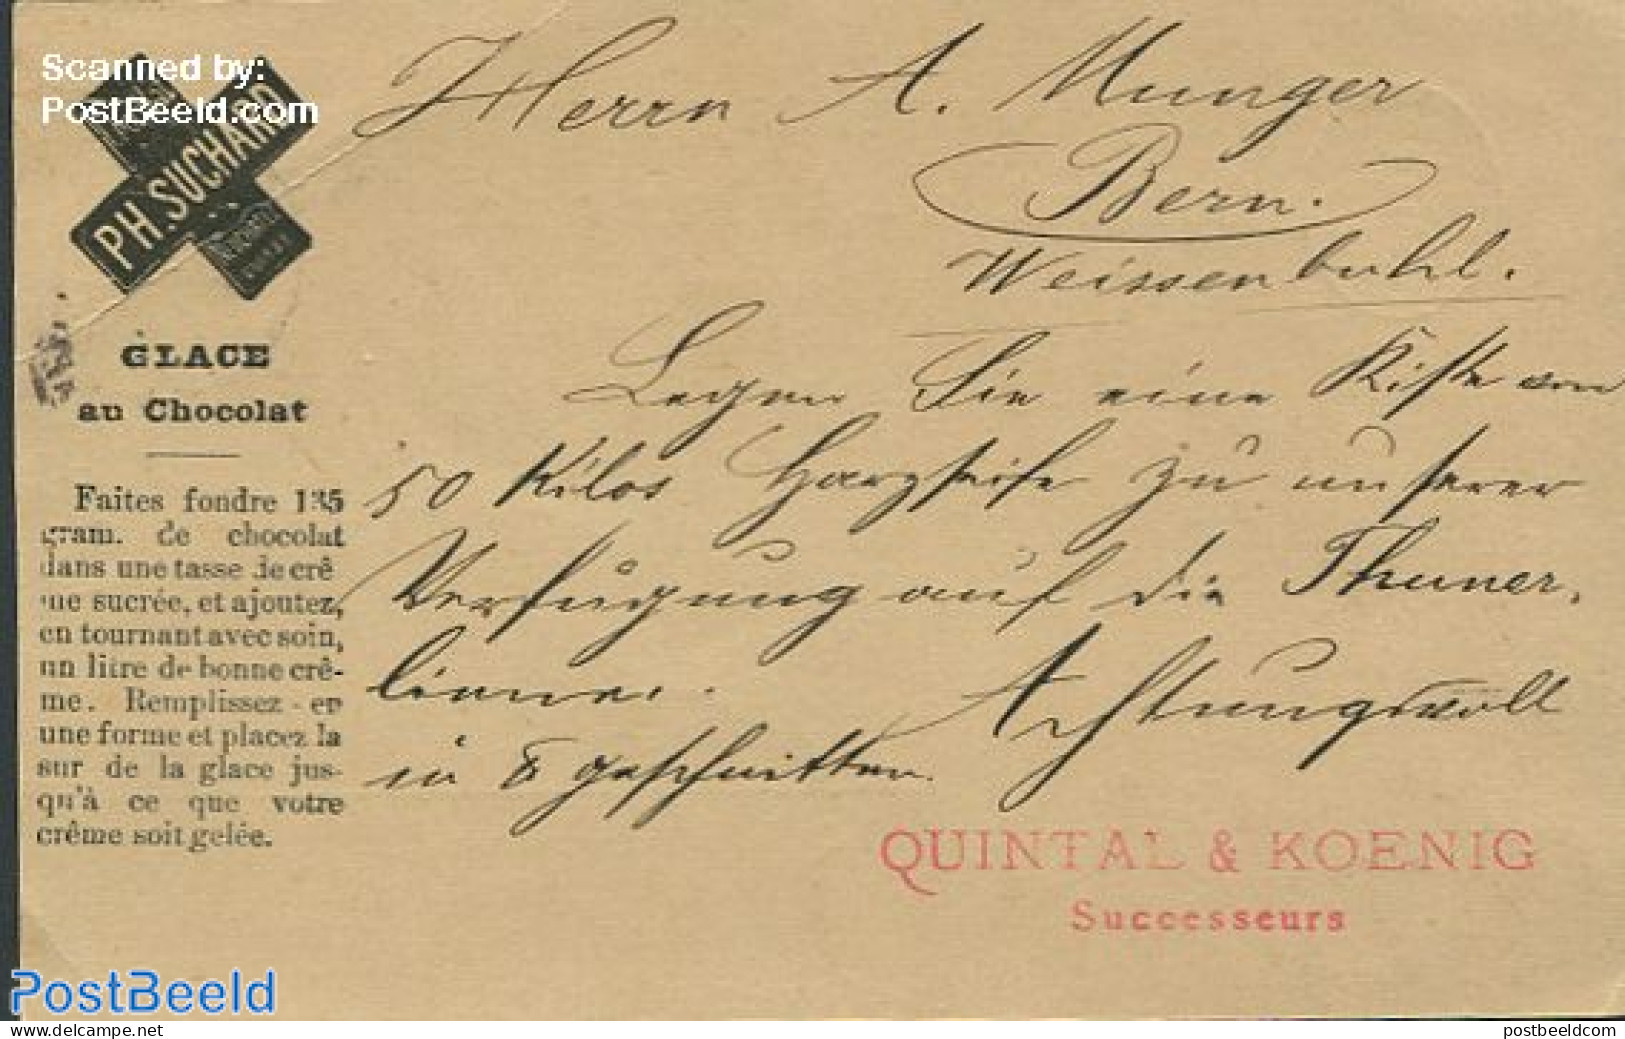 Scanned by:
PostBeeld.com
PH. SUCHARD
GLACE
au Chocolat
Faites fondre 135
gram. de chocolat
dans une tasse de crê
me sucrée, et ajoutez,
en tournant avec soin,
un litre de bonne crê-
me. Remplissez-en
une forme et placez la
sur de la glace jus-
qu'à ce que votre
crême soit gelée.
Herrn A. Munger
Bern.
Weissenbuhl.
Legen Sie eine Kiste von
50 Kilos Harzseife zu unserer
Verfügung auf die Thuner-
linie.
Achtungsvoll
in 8 geschnitten.
QUINTAL & KOENIG
Successeurs
PostBeeld
www.delcampe.net
postbeeldcom